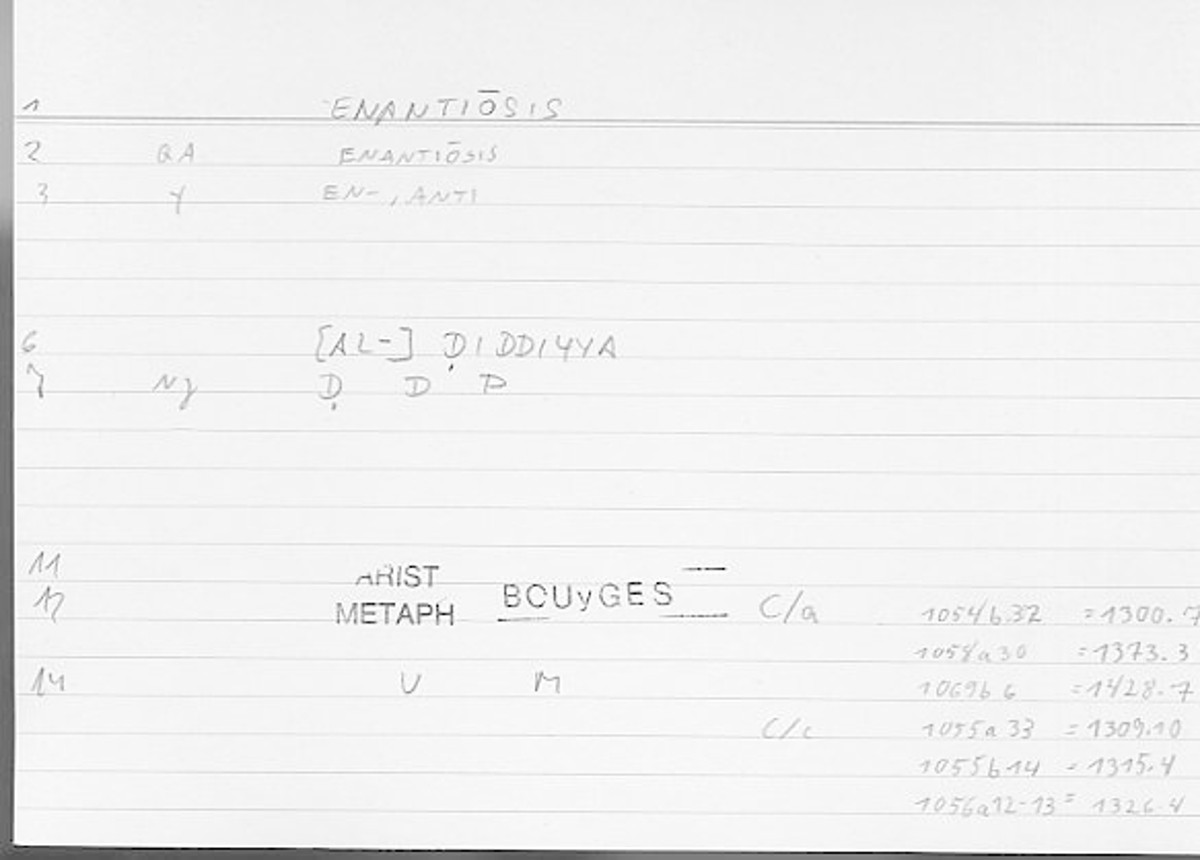 1 ENANTIŌSIS
2 QA ENANTIŌSIS
3 Y EN-, ANTI
6 [AL-] ḌIDDIYYA
7 Nz Ḍ D D
11 ARIST
12 METAPH BOUyGES C/a 1054b32 = 1300.7
1058a30 = 1373.3
14 U M 1069b6 = 1428.7
C/c 1055a33 = 1309.10
1055b14 = 1315.4
1056a12-13 = 1326.4